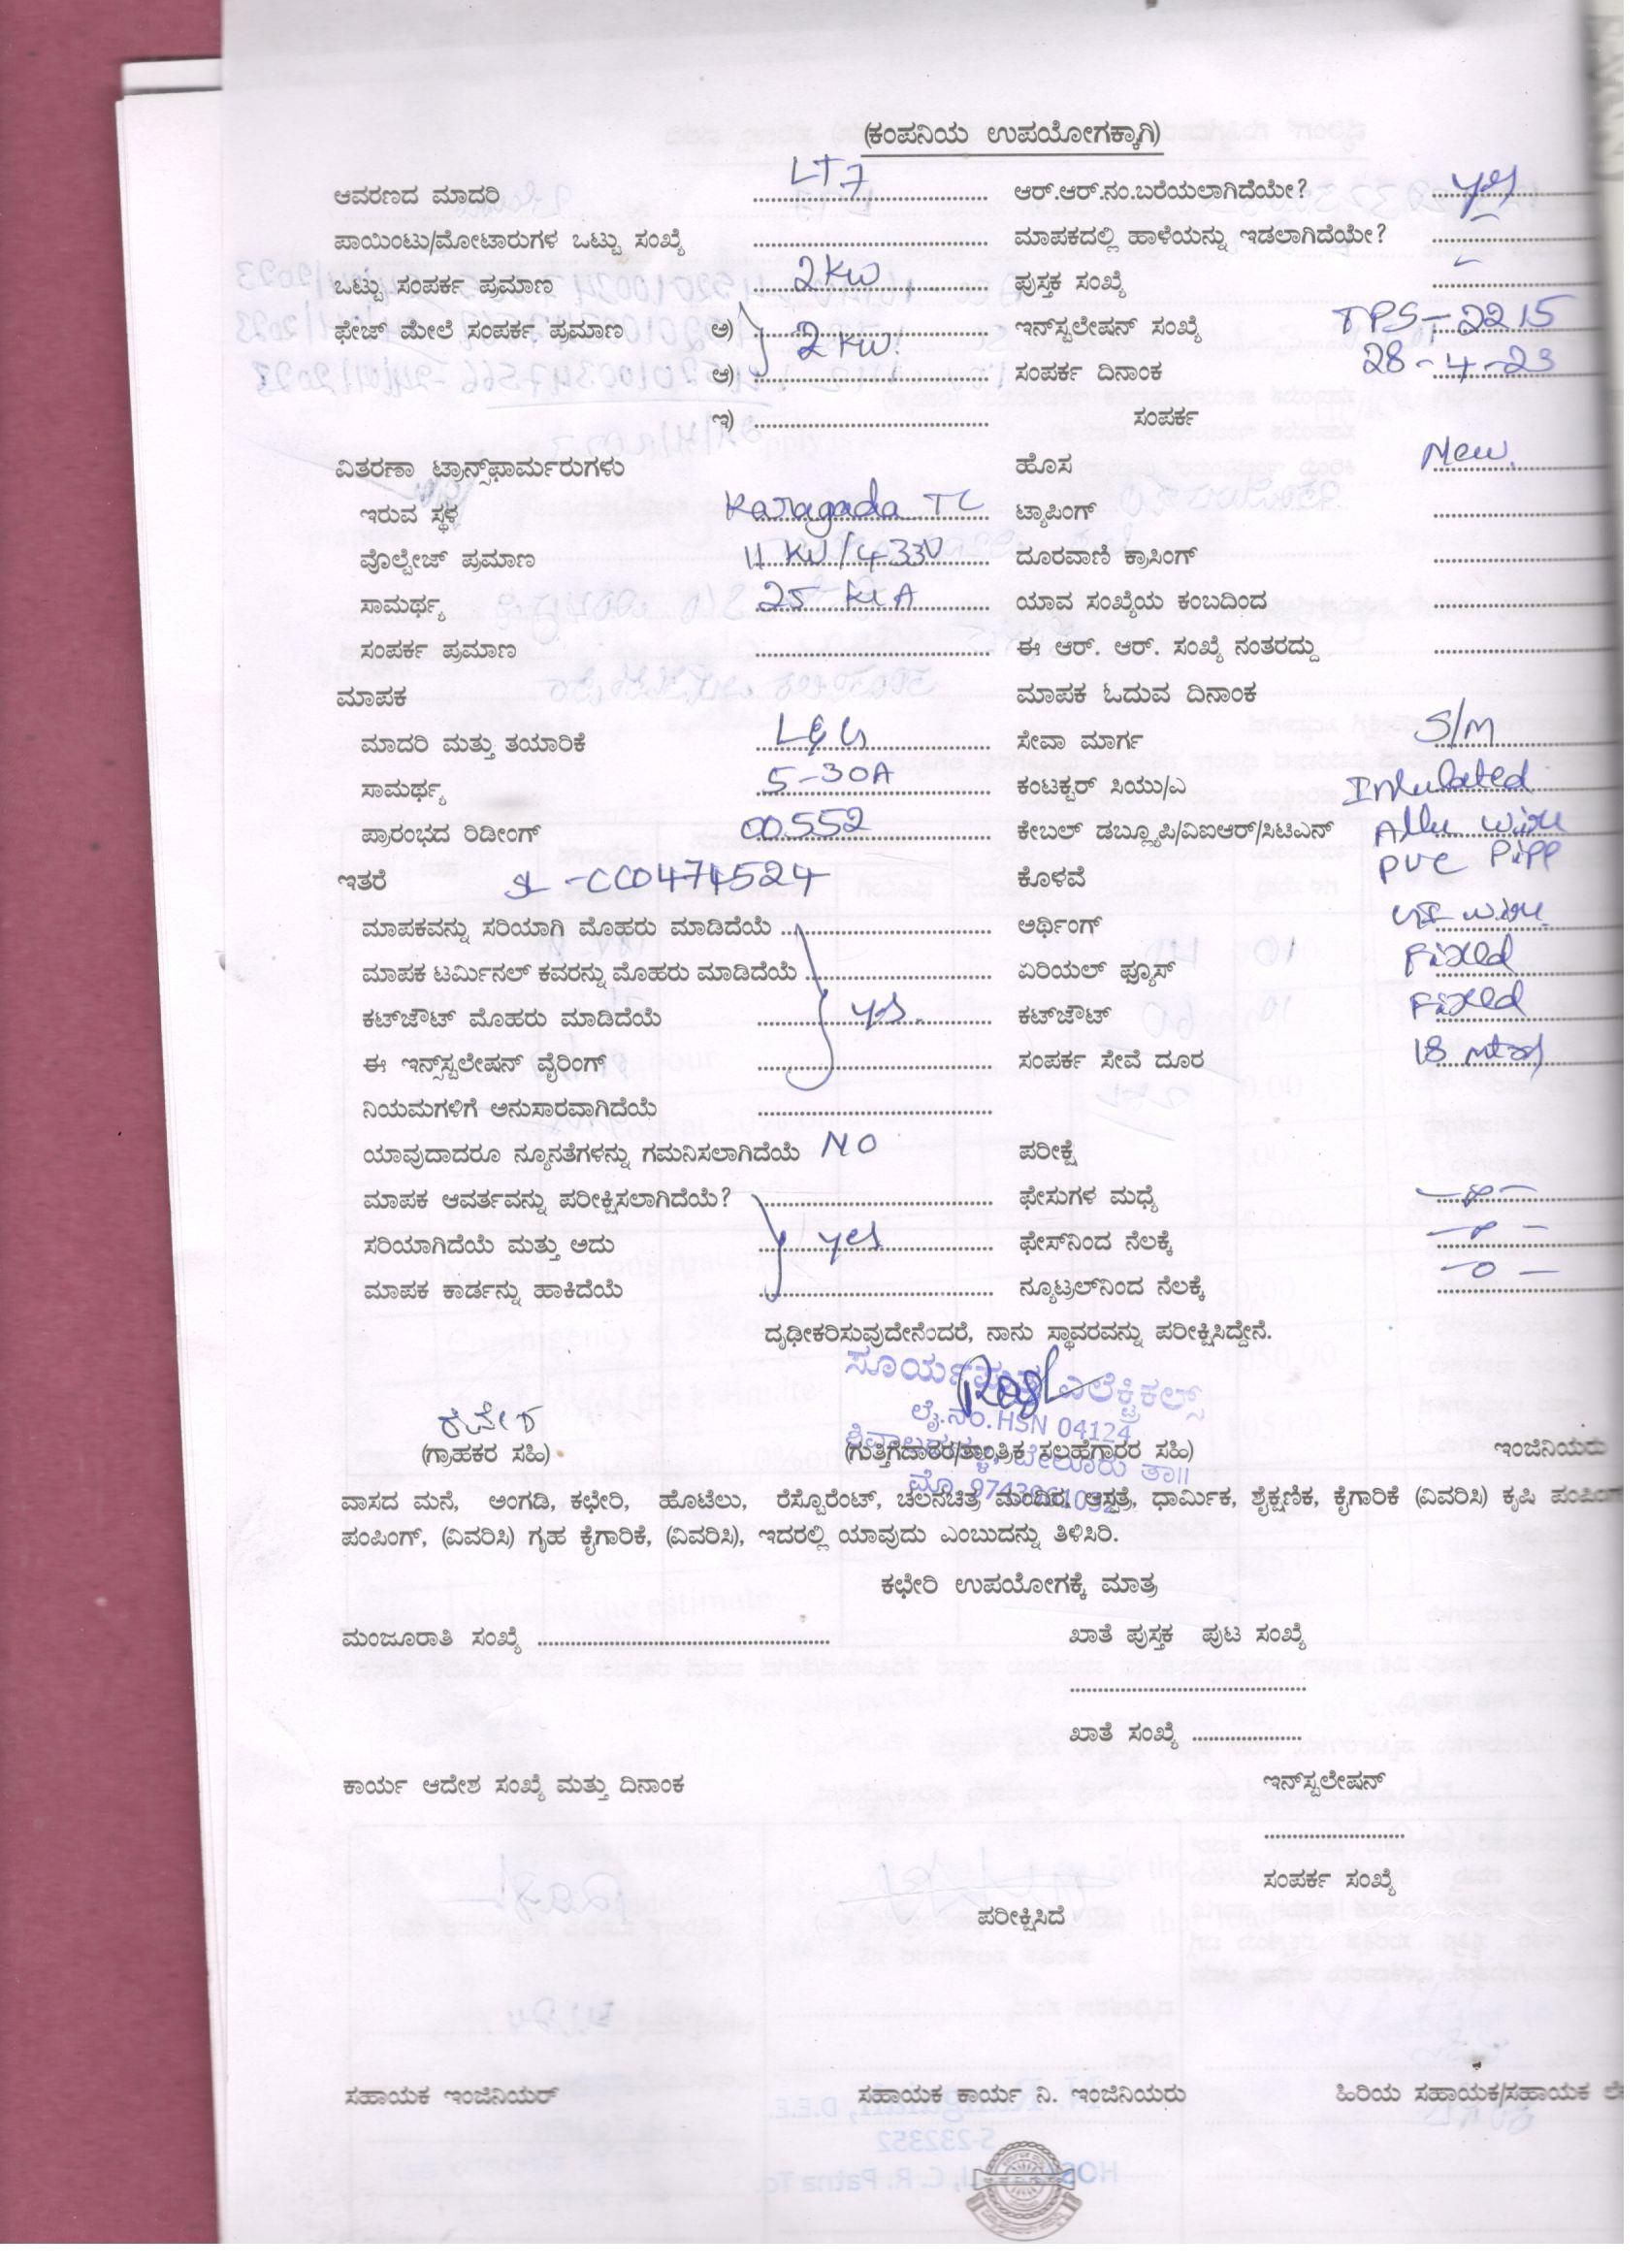 (ಕಂಪನಿಯ ಉಪಯೋಗಕ್ಕಾಗಿ)
ಆವರಣದ ಮಾದರಿ LT7 ಆರ್.ಆರ್.ನಂ.ಬರೆಯಲಾಗಿದೆಯೇ? yes
ಪಾಯಿಂಟು/ಮೋಟಾರುಗಳ ಒಟ್ಟು ಸಂಖ್ಯೆ ಮಾಪಕದಲ್ಲಿ ಹಾಳೆಯನ್ನು ಇಡಲಾಗಿದೆಯೇ?
ಒಟ್ಟು ಸಂಪರ್ಕ ಪ್ರಮಾಣ 2KW ಪುಸ್ತಕ ಸಂಖ್ಯೆ
ಫೇಜ್ ಮೇಲೆ ಸಂಪರ್ಕ ಪ್ರಮಾಣ ಅ) 2KW ಇನ್‌ಸ್ಟಲೇಷನ್ ಸಂಖ್ಯೆ TPS-2215
ಆ) ಸಂಪರ್ಕ ದಿನಾಂಕ 28-4-23
ಇ) ಸಂಪರ್ಕ
ವಿತರಣಾ ಟ್ರಾನ್ಸ್‌ಫಾರ್ಮರುಗಳು ಹೊಸ New.
ಇರುವ ಸ್ಥಳ Karagada TC ಟ್ಯಾಪಿಂಗ್
ವೊಲ್ಟೇಜ್ ಪ್ರಮಾಣ 11 KV/433V ದೂರವಾಣಿ ಕ್ರಾಸಿಂಗ್
ಸಾಮರ್ಥ್ಯ 25 KVA ಯಾವ ಸಂಖ್ಯೆಯ ಕಂಬದಿಂದ
ಸಂಪರ್ಕ ಪ್ರಮಾಣ ಈ ಆರ್. ಆರ್. ಸಂಖ್ಯೆ ನಂತರದ್ದು
ಮಾಪಕ ಮಾಪಕ ಓದುವ ದಿನಾಂಕ
ಮಾದರಿ ಮತ್ತು ತಯಾರಿಕೆ L&G ಸೇವಾ ಮಾರ್ಗ S/M
ಸಾಮರ್ಥ್ಯ 5-30A ಕಂಟಕ್ಟರ್ ಸಿಯು/ಎ
ಪ್ರಾರಂಭದ ರಿಡೀಂಗ್ 00552 ಕೇಬಲ್ ಡಬ್ಲ್ಯೂಪಿ/ವಿಐಆರ್/ಸಿಟಿಎನ್
ಇತರೆ SL-CC0474524 ಕೊಳವೆ PVC
ಮಾಪಕವನ್ನು ಸರಿಯಾಗಿ ಮೊಹರು ಮಾಡಿದೆಯೆ ಅರ್ಥಿಂಗ್ wire
ಮಾಪಕ ಟರ್ಮಿನಲ್ ಕವರನ್ನು ಮೊಹರು ಮಾಡಿದೆಯೆ ಏರಿಯಲ್ ಫ್ಯೂಸ್ Fixed
ಕಟ್‌ಜೌಟ್ ಮೊಹರು ಮಾಡಿದೆಯೆ yes. ಕಟ್‌ಜೌಟ್ Fixed
ಈ ಇನ್ಸ್‌ಸ್ಟಲೇಷನ್ ವೈರಿಂಗ್ ಸಂಪರ್ಕ ಸೇವೆ ದೂರ 18 mtrs
ನಿಯಮಗಳಿಗೆ ಅನುಸಾರವಾಗಿದೆಯೆ
ಯಾವುದಾದರೂ ನ್ಯೂನತೆಗಳನ್ನು ಗಮನಿಸಲಾಗಿದೆಯೆ NO ಪರೀಕ್ಷೆ
ಮಾಪಕ ಆವರ್ತವನ್ನು ಪರೀಕ್ಷಿಸಲಾಗಿದೆಯೆ? ಫೇಸುಗಳ ಮಧ್ಯೆ
ಸರಿಯಾಗಿದೆಯೆ ಮತ್ತು ಅದು yes ಫೇಸ್‌ನಿಂದ ನೆಲಕ್ಕೆ
ಮಾಪಕ ಕಾರ್ಡನ್ನು ಹಾಕಿದೆಯೆ ನ್ಯೂಟ್ರಲ್‌ನಿಂದ ನೆಲಕ್ಕೆ -0-
ದೃಢೀಕರಿಸುವುದೇನೆಂದರೆ, ನಾನು ಸ್ಥಾವರವನ್ನು ಪರೀಕ್ಷಿಸಿದ್ದೇನೆ.
ಎಲೆಕ್ಟ್ರಿಕಲ್ಸ್
ಲೈ.ನಂ.HSN 04124
(ಗ್ರಾಹಕರ ಸಹಿ) (ಗುತ್ತಿಗೆದಾರರ/ತಾಂತ್ರಿಕ ಸಲಹೆಗಾರರ ಸಹಿ) ಇಂಜಿನಿಯರು
ಬೇಲೂರು ತಾ॥
ವಾಸದ ಮನೆ, ಅಂಗಡಿ, ಕಛೇರಿ, ಹೊಟೆಲು, ರೆಸ್ಟೊರೆಂಟ್, ಚಲನಚಿತ್ರ ಮಂದಿರ, ಆಸ್ಪತ್ರೆ, ಧಾರ್ಮಿಕ, ಶೈಕ್ಷಣಿಕ, ಕೈಗಾರಿಕೆ (ವಿವರಿಸಿ) ಕೃಷಿ ಪಂಪಿಂಗ್
ಪಂಪಿಂಗ್, (ವಿವರಿಸಿ) ಗೃಹ ಕೈಗಾರಿಕೆ, (ವಿವರಿಸಿ), ಇದರಲ್ಲಿ ಯಾವುದು ಎಂಬುದನ್ನು ತಿಳಿಸಿರಿ.
ಕಛೇರಿ ಉಪಯೋಗಕ್ಕೆ ಮಾತ್ರ
ಮಂಜೂರಾತಿ ಸಂಖ್ಯೆ ಖಾತೆ ಪುಸ್ತಕ ಪುಟ ಸಂಖ್ಯೆ
ಖಾತೆ ಸಂಖ್ಯೆ
ಕಾರ್ಯ ಆದೇಶ ಸಂಖ್ಯೆ ಮತ್ತು ದಿನಾಂಕ ಇನ್‌ಸ್ಟಲೇಷನ್
ಸಂಪರ್ಕ ಸಂಖ್ಯೆ
ಪರೀಕ್ಷಿಸಿದೆ
ಸಹಾಯಕ ಇಂಜಿನಿಯರ್ ಸಹಾಯಕ ಕಾರ್ಯ ನಿ. ಇಂಜಿನಿಯರು ಹಿರಿಯ ಸಹಾಯಕ/ಸಹಾಯಕ